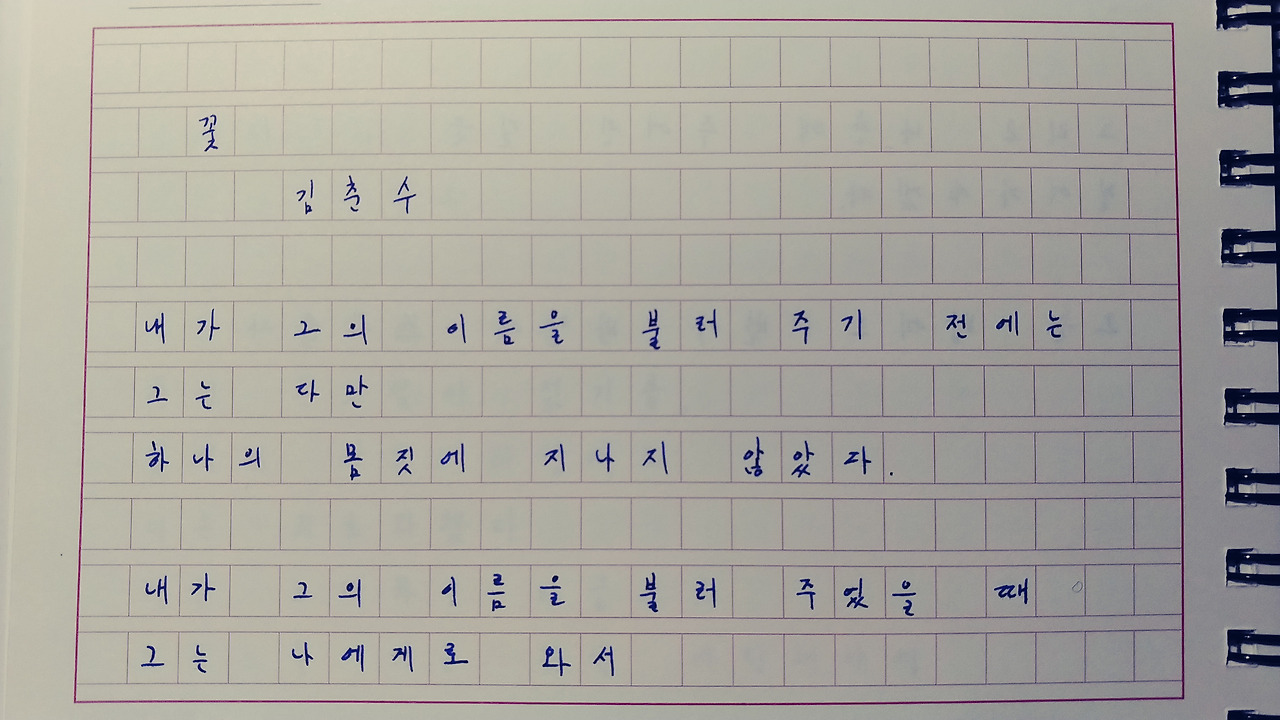 꽃
김춘수
내가 그의 이름을 불러 주기 전에는
그는 다만
하나의 몸짓에 지나지 않았다.
내가 그의 이름을 불러 주었을 때
그는 나에게로 와서